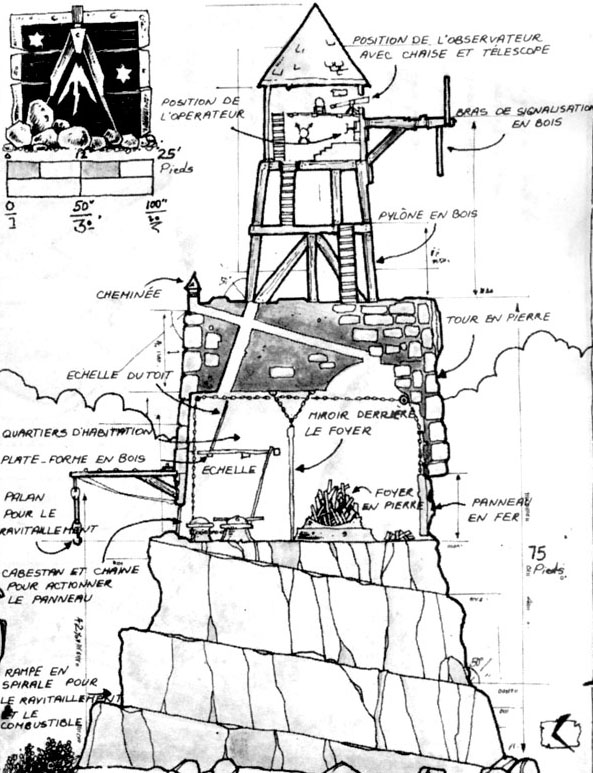 POSITION DE L'OBSERVATEUR
AVEC CHAISE ET TÉLESCOPE
POSITION DE
L'OPERATEUR
BRAS DE SIGNALISATION
EN BOIS
25'
Pieds
0
50"
100"
PYLÔNE EN BOIS
CHEMINÉE
TOUR EN PIERRE
ECHELLE DU TOIT
MIROIR DERRIÈRE
LE FOYER
QUARTIERS D'HABITATION
PLATE-FORME EN BOIS
ECHELLE
FOYER
EN PIERRE
PANNEAU
EN FER
PALAN
POUR LE
RAVITAILLEMENT
75
Pieds
CABESTAN ET CHAÎNE
POUR ACTIONNER
LE PANNEAU
RAMPE EN
SPIRALE POUR
LE RAVITAILLEMENT
ET LE
COMBUSTIBLE